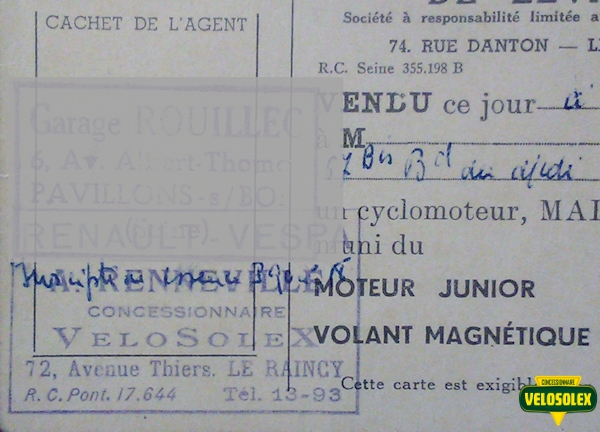 CACHET DE L'AGENT
Société à responsabilité limitée a
74. RUE DANTON — L
R.C. Seine 355.198 B
VENDU ce jour à
à M
57 Bis Bd du
un cyclomoteur, MAI
muni du
MOTEUR JUNIOR
VOLANT MAGNÉTIQUE
Cette carte est exigibl
Garage ROUILLEC
6, Av. Albert-Thomas
PAVILLONS-s/BO
RENAULT-VESPA
A. RENNEVILLE
CONCESSIONNAIRE
VELOSOLEX
72, Avenue Thiers. LE RAINCY
R.C. Pont. 17.644 Tél. 13-93
CONCESSIONNAIRE
VELOSOLEX